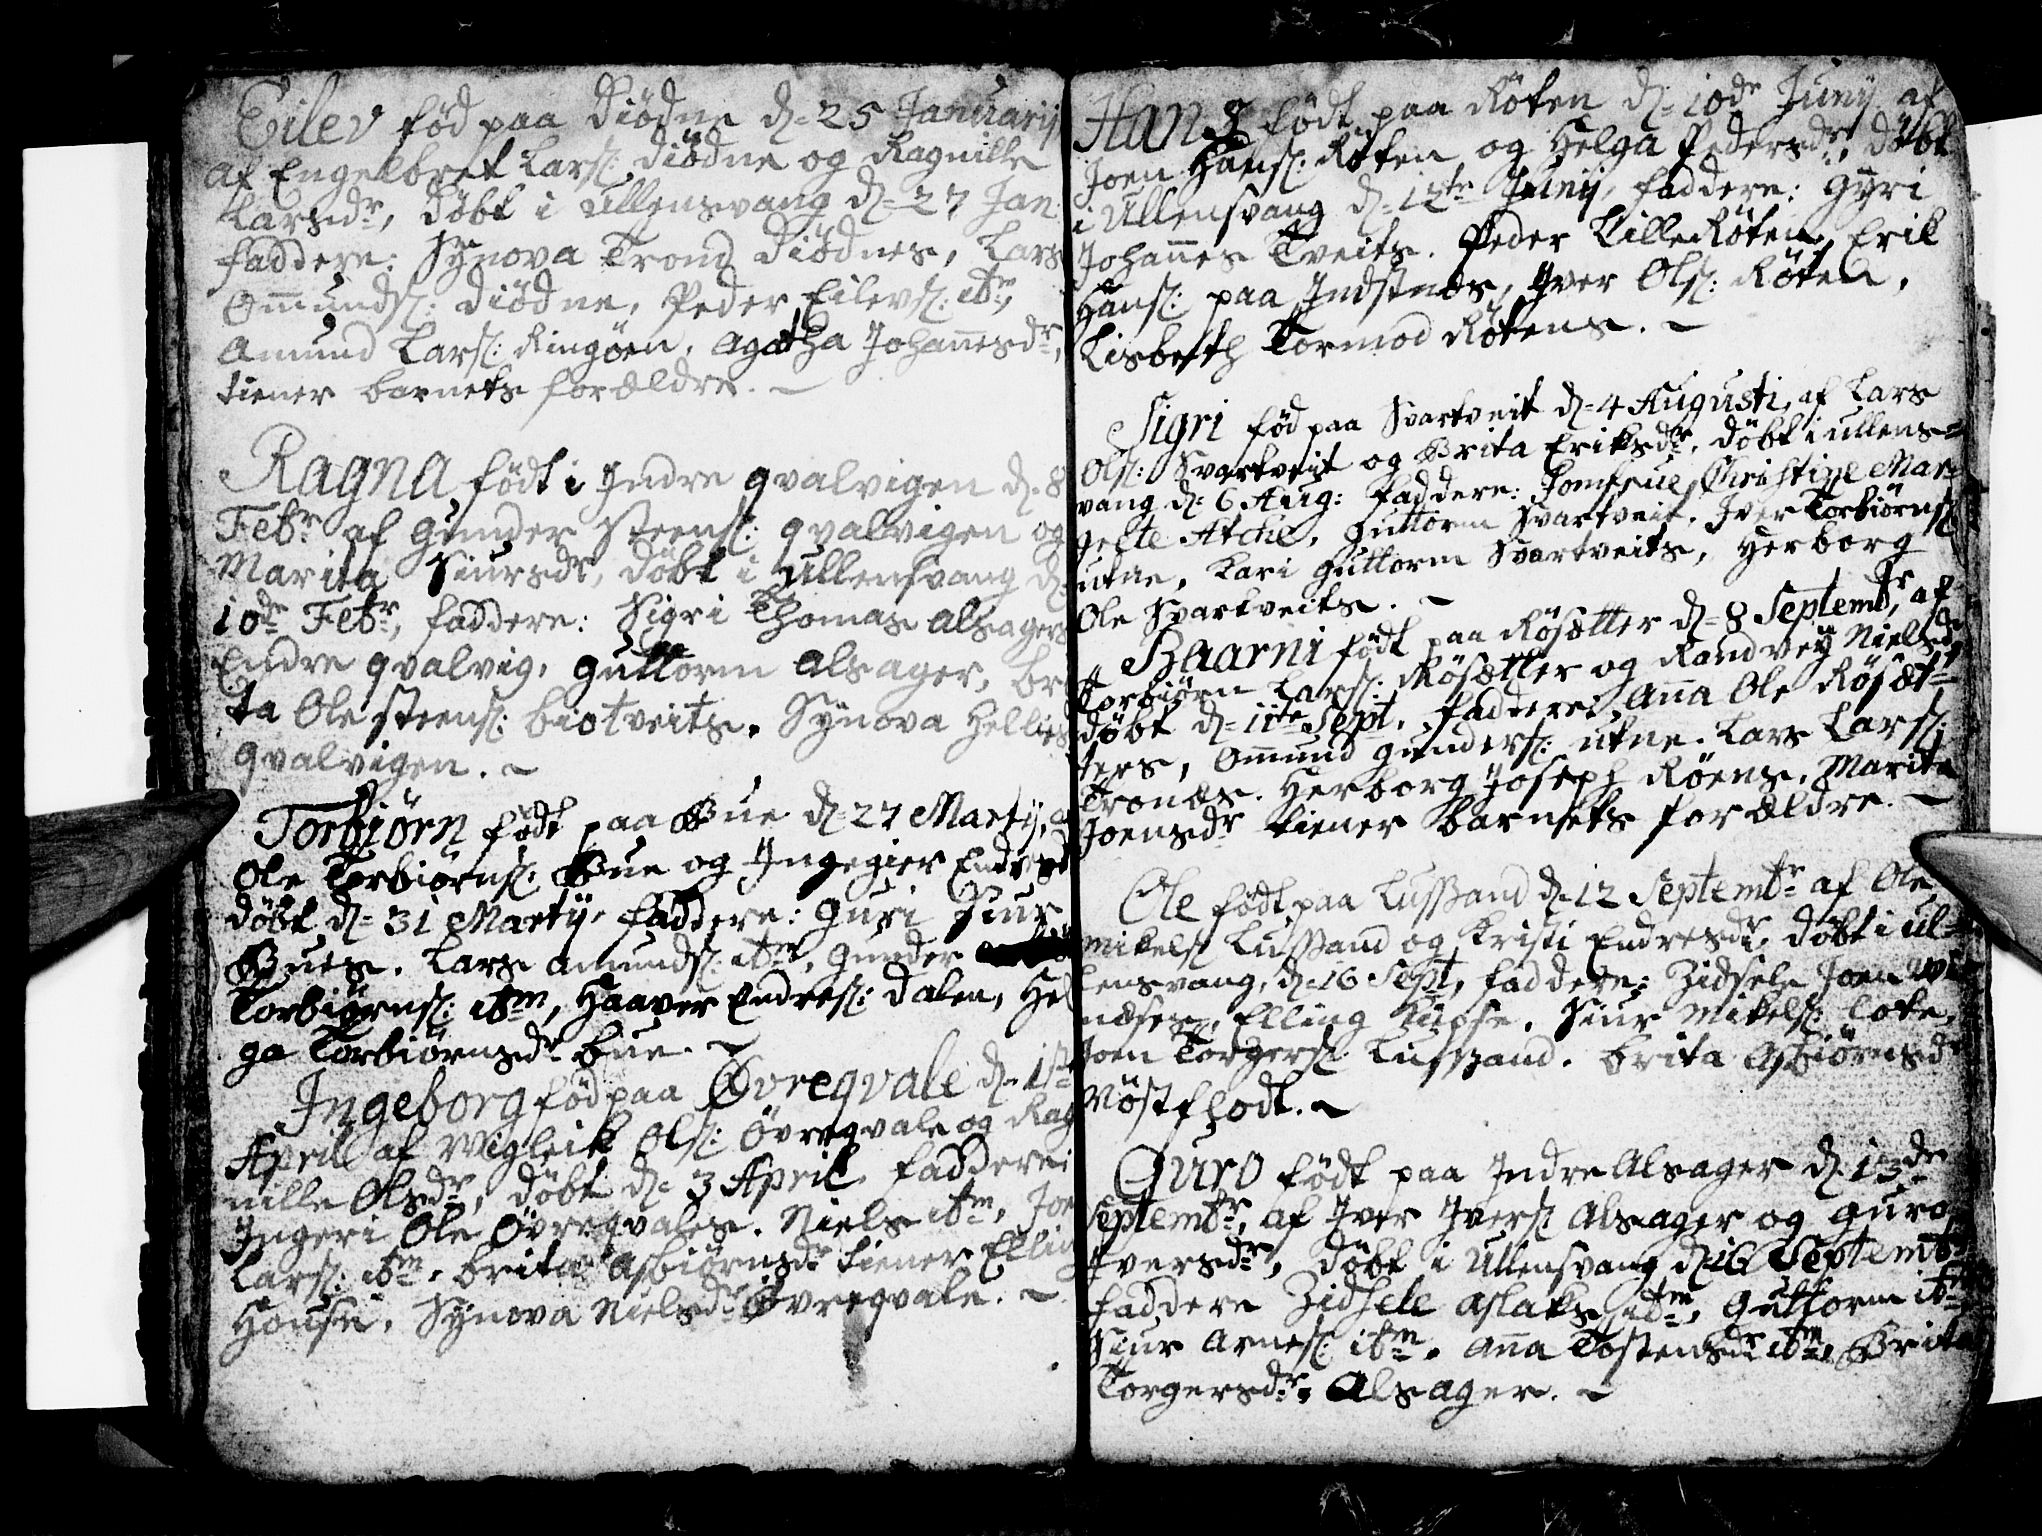 Eilev fød paa Diødne d= 25 Januarij
af Engelbret Lars: Diødne og Ragnille
Larsdr, døbt i Ullensvang d= 27 Jan
faddere: Synova Trond Diødnes, Lars
Omunds: Diødne, Peder Eilevs: ibm,
Amund Lars: Ringøen, Agatha Johanesdr,
tiener barnets forældre. ~
Ragna født i Indre qvalvigen d. 8
Febr af Gunder Steens: qvalvigen og
Marita Siursdr, døbt i Ullensvang d.
10de Febr, faddere: Sigri Thomas alsagers
Endre qvalvig, Guttorm alsager, br
ta Ole Steens: biotveits. Synova Hellies
qvalvigen. ~
Torbiörn født paa Bue d= 27 Martij, a
Ole Torbiørns: Bue og Ingegier Endresd
døbt d= 31 Martij. faddere: Guri Siur
Bues. Lars Amunds: ibm, Gunder
Torbiørns: ibm, Haaver Endres: Dalen, Hel
ga Torbiørnsdr bue. ~
Ingeborg fød paa Øvreqvale d= 1ste
April af Wigleik Ols: Øvreqvale og Rag
nille Olsdr, døbt d= 3 April. faddere:
Ingeri Ole Øvreqvales. Niels ibm, Joen
Lars: ibm. brita Asbiørnsdr tiener Elling
House. Synova Nielsdr Øvreqvale. ~
Hans født paa Røten d= 10de Junij af
Joen Hans: Røten og Helga Pedersdr, døbt
i Ullensvang d= 12te Junij, faddere: Gyri
Johannes Tveits. Peder LilleRøten, Erik
Hans: paa Indstnes, Iver Ols: Røten,
Lisbeth Tormod Røtens. ~
Sigri fød paa Svartveit d= 4 Augusti, af Lars
Ols: Svartveit og Brita Eriksdr. døbt i ullens=
vang d: 6 Aug: faddere: Jomfrue Christine Mar=
grete Atche, Guttorm Svartveit. Iver Torbiørns
utne, Kari Guttorm Svartveits, Herborg
Ole Svartveits. ~
Baarni født paa Røsætter d= 8 Septembr, af
Torbiørn Lars: Røsætter og Randvey Nielsdr
døbt d= 11te Sept. faddere: Anna Ole Røsæt=
ters, Omund Gunders: utne. Lars Lars:
Tronæs. Herborg Joseph Røens. Marita
Joensdr tiener barnets forældre. ~
Ole født paa Lussand d. 12 Septembr af Ole
Mikels: Lussand og Kristi Endresdr. døbt i ul=
lensvang, d= 16 Sept, faddere: Zidsele Joen
næses, Elling Kupse. Siur Mikels: lote,
Joen Torgers: Lussand. brita Asbiørnsdr
~
Guro født paa Indre Alsager d. 13de
Septembr, af Iver Ivers: Alsager og Guro
Iversdr, døbt i Ullensvang d. 16 Septembr
faddere Zidsele Aslaks ibm, Guttorm ibm
Siur Arnes: ibm. Anna Tostensdr ibm, Brita
Torgersdr. Alsager. ~